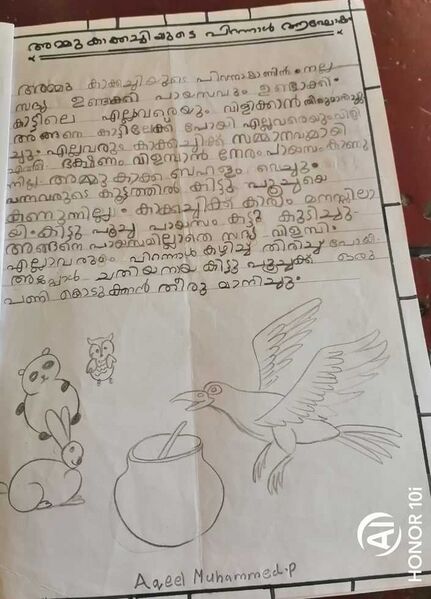 അമ്മു കാക്കച്ചിയുടെ പിറന്നാൾ ആഘോഷം
അമ്മു കാക്കച്ചിയുടെ പിറന്നാളാണിന്ന്. നല്ല
സദ്യ ഉണ്ടാക്കി പായസവും ഉണ്ടാക്കി.
കാട്ടിലെ എല്ലാവരെയും വിളിക്കാൻ തീരുമാനിച്ചു
അങ്ങനെ കാട്ടിലേക്ക് പോയി എല്ലാവരെയും വിളി
ച്ചു. എല്ലാവരും കാക്കച്ചിക്ക് സമ്മാനവുമായി
എത്തി ഭക്ഷണം വിളമ്പാൻ നേരം പായസം കാണു
ന്നില്ല അമ്മു കാക്ക ബഹളം വെച്ചു.
വന്നവരുടെ കൂട്ടത്തിൽ കിട്ടു പൂച്ചയെ
കാണുന്നില്ല. കാക്കച്ചിക്ക് കാര്യം മനസ്സിലാ
യി. കിട്ടു പൂച്ച പായസം കട്ടു കുടിച്ചു.
അങ്ങനെ പായസമില്ലാതെ സദ്യ വിളമ്പി.
എല്ലാവരും പിറന്നാൾ കഴിച്ച് തിരിച്ച് പോയി.
അപ്പോൾ ചതിയനായ കിട്ടു പൂച്ചക്ക് ഒരു
പണി കൊടുക്കാൻ തീരുമാനിച്ചു.
Aqeel Muhammed.P
AI
HONOR 10i